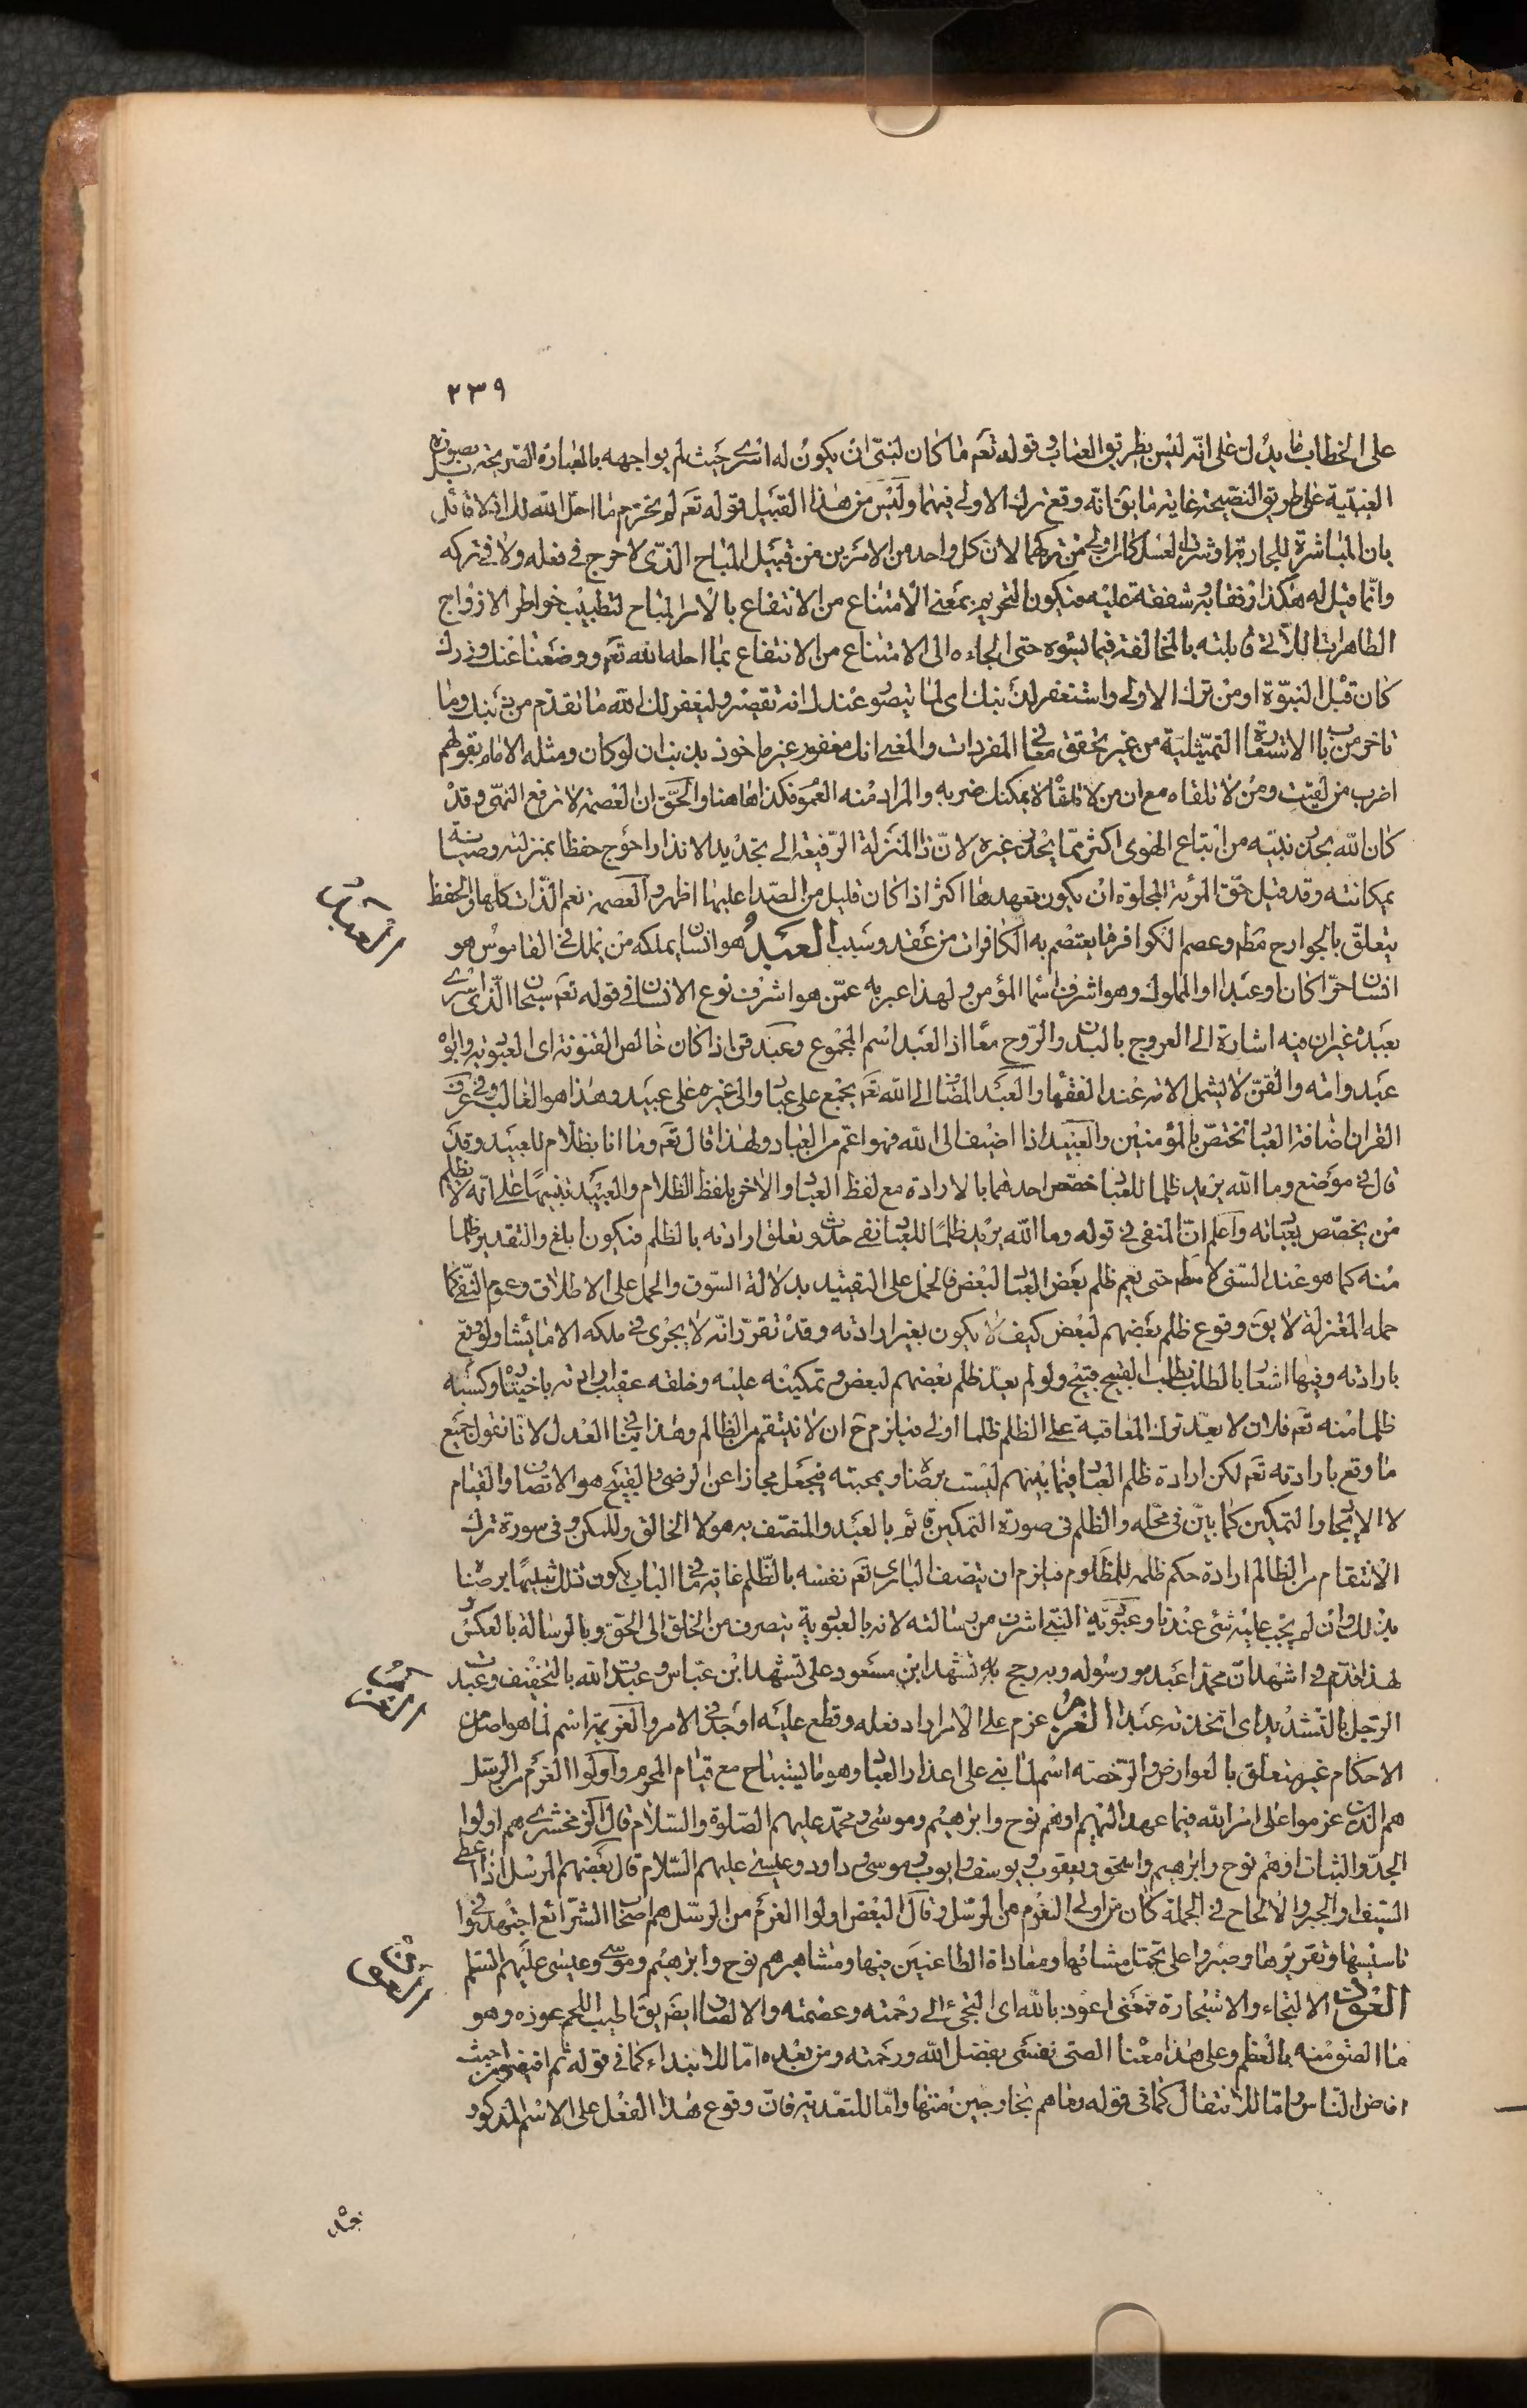 ٢٣٩
على الخطاب ما يدل على انه ليس بطريق العتاب وقوله تعم ما كان لنبي ان يكون له اسرى حيث لم يواجهه بالعبارة الصريحة بصورة
على طريق النصيحة غاية ما يق انه وقع ترك الاولى فيهما وليس من هذا القبيل قوله تعم لم تحرم ما احل الله لك اذ لا قائل
بان المباشرة للجارية او شرب العسل كان اولى من تركهما لان كل واحد من الامرين من قبيل المباح الذى لا حرج فى فعله ولا فى تركه
وانما قيل له هكذا رفقا به وشفقة عليه فيكون التحريم بمعنى الامتناع من الانتفاع بالامر المباح لتطييب خواطر الازواج
الطاهرات اللاتى قابلنه بالمخالفة فيما يسوه حتى الجاءه الى الامتناع من الانتفاع بما احله الله تعم ووضعنا عنك وزرك
كان قبل النبوة او من ترك الاولى واستغفر لذنبك اى لما يتصور عندك انه تقصير وليغفر لك الله ما تقدم من ذنبك وما
تاخر من باب الاستعارة التمثيلية من غير تحقق معانى المفردات والمعنى انك مغفور غير ماخوذ بذنب ان لو كان ومثله الامام بقولهم
اضرب من لقيت ومن لا تلقاه مع ان من لا تلقاه لا يمكنك ضربه والمراد منه العموم فكذا هاهنا والحق ان العصمة لا ترفع النهى وقد
كان الله يحذر نبيه من اتباع الهوى اكثر مما يحذر غيره لان ذا المنزلة الرفيعة الى تجديد الانذار احوج حفظا بمنزلته وصيانة
بمكانته وقد قيل حق المرئة المجلوة ان يكون تعهدها اكثر اذا كان قليل من الصدا عليها اظهر والعصمة تعم الذات كلها والحفظ
يتعلق بالجوارح مطم وعصم الكوافر ما يعتصم به الكافرات من عقد وسبب العبد هو انسان يملكه من يملك فى القاموس هو
انسان حرا كان او عبدا او المملوك وهو اشرف اسما المؤمن ولهذا عبر به عمن هو اشرف نوع الانسان فى قوله تعم سبحان الذى اسرى
بعبده غير ان فيه اشارة الى العروج بالبدن والروح معا اذ العبد اسم المجموع وعبد قن اذا كان خالص القنونة اى العبودية وابواه
عبد وامة والقن لا يشمل الامة عند الفقها والعبد المضاف الى الله تعم يجمع على عباد والى غيره على عبيد وهذا هو الغالب وفى عرف
القران اضافة العباد تختص بالمؤمنين والعبيد اذا اضيف الى الله فهو اعم من العباد ولهذا قال تعم وما انا بظلام للعبيد وقد
قال فى موضع وما الله يريد ظلما للعباد خصص احدهما بالارادة مع لفظ العباد والاخر بلفظ الظلام والعبيد تنبيها على انه لا يظلم
من يخصص بعبادته واعلم ان المنفى فى قوله وما الله يريد ظلما للعباد نفى حدوث تعلق ارادته بالظلم فيكون ابلغ والتقدير ظلما
منه كما هو عند السنى لا مطم حتى يعم ظلم بعض العباد لبعض فالحمل على التقييد بدلالة السوق والحمل على الاطلاق وعموم النفى كما
حمله المعتزلة لا يق وقوع ظلم بعضهم لبعض كيف لا يكون بغير ارادته وقد تقرر انه لا يجرى فى ملكه الا ما يشاء ولو وقع
بارادته وفيها اشعار بالطلب وطلب القبيح قبيح ولو لم يعد ظلم بعضهم لبعض وتمكينه عليه وخلقه عقيب ارادته باختياره وكسبه
ظلما منه تعم فلان لا يعد ترك المعاقبة على الظلم ظلما اولى فيلزم ح ان لا ينتقم من الظالم وهذا ينافى العدل لانا نقول جميع
ما وقع بارادته تعم لكن ارادة ظلم العباد فيما بينهم ليست برضاه وبمحبته فيجعل مجازا عن الرضى والقبيح هو الاتصاف والقيام
لا الايجاد والتمكين كما بين فى محله والظلم فى صورة التمكين قائم بالعبد والمتصف به هو لا الخالق والممكن وفى صورة ترك
الانتقام من الظالم ارادة حكم ظلمه للمظلوم فيلزم ان يتصف البارى تعم نفسه بالظلم غاية ما فى الباب يكون ذلك تنبيها برضنا
بذلك وان لم يجب عليه شئ عندنا وعبودية النبى اشرف من رسالته لانه بالعبودية ينصرف من الخلق الى الحق وبالرسالة بالعكس
لهذا قدم فى اشهد ان محمدا عبده ورسوله وبه رجح تشهد ابن مسعود على تشهد ابن عباس وعبدت الله بالتخفيف وعبدت
الرجل بالتشديد اى اتخذته عبدا العزم عزم على الامر اراد فعله وقطع عليه او جد فى الامر والعزيمة اسم لما هو اصل من
الاحكام غير متعلق بالعوارض والرخصة اسم لما بنى على اعذار العباد وهو ما يستباح مع قيام المحرم واولوا العزم من الرسل
هم الذين عزموا على امر الله فيما عهد اليهم او هم نوح وابرهيم وموسى ومحمد عليهم الصلوة والسلام قال الزمخشرى هم اولوا
الجد والثبات او هم نوح وابرهيم واسحق ويعقوب ويوسف وايوب وموسى وداود وعيسى عليهم السلام قال بعضهم المرسل اذا اعطى
السيف والجبر والالحاح فى الجملة كان من اولى العزم من الرسل وقال البعض اولوا العزم من الرسل هم اصحاب الشرائع اجتهدوا فى
تاسيسها وتقريرها وصبروا على تحمل مشاقها ومعاداة الطاعنين فيها ومشاهيرهم نوح وابرهيم وموسى وعيسى عليهم السلم
العوذ الالتجاء والاستجارة فمعنى اعوذ بالله اى التجئ الى رحمته وعصمته والالصاق ايضم يق اطيب اللحم عوذه وهو
ما التصق منه بالعظم وعلى هذا معناه الصق نفسى بفضل الله ورحمته ومن بعده اما للابتداء كما فى قوله ثم افيضوا من حيث
افاض الناس واما للانتقال كما فى قوله وما هم بخارجين منها واما للتعدية فان وقوع هذا الفعل على الاسم المذكور
العبد
العزم
العوذ